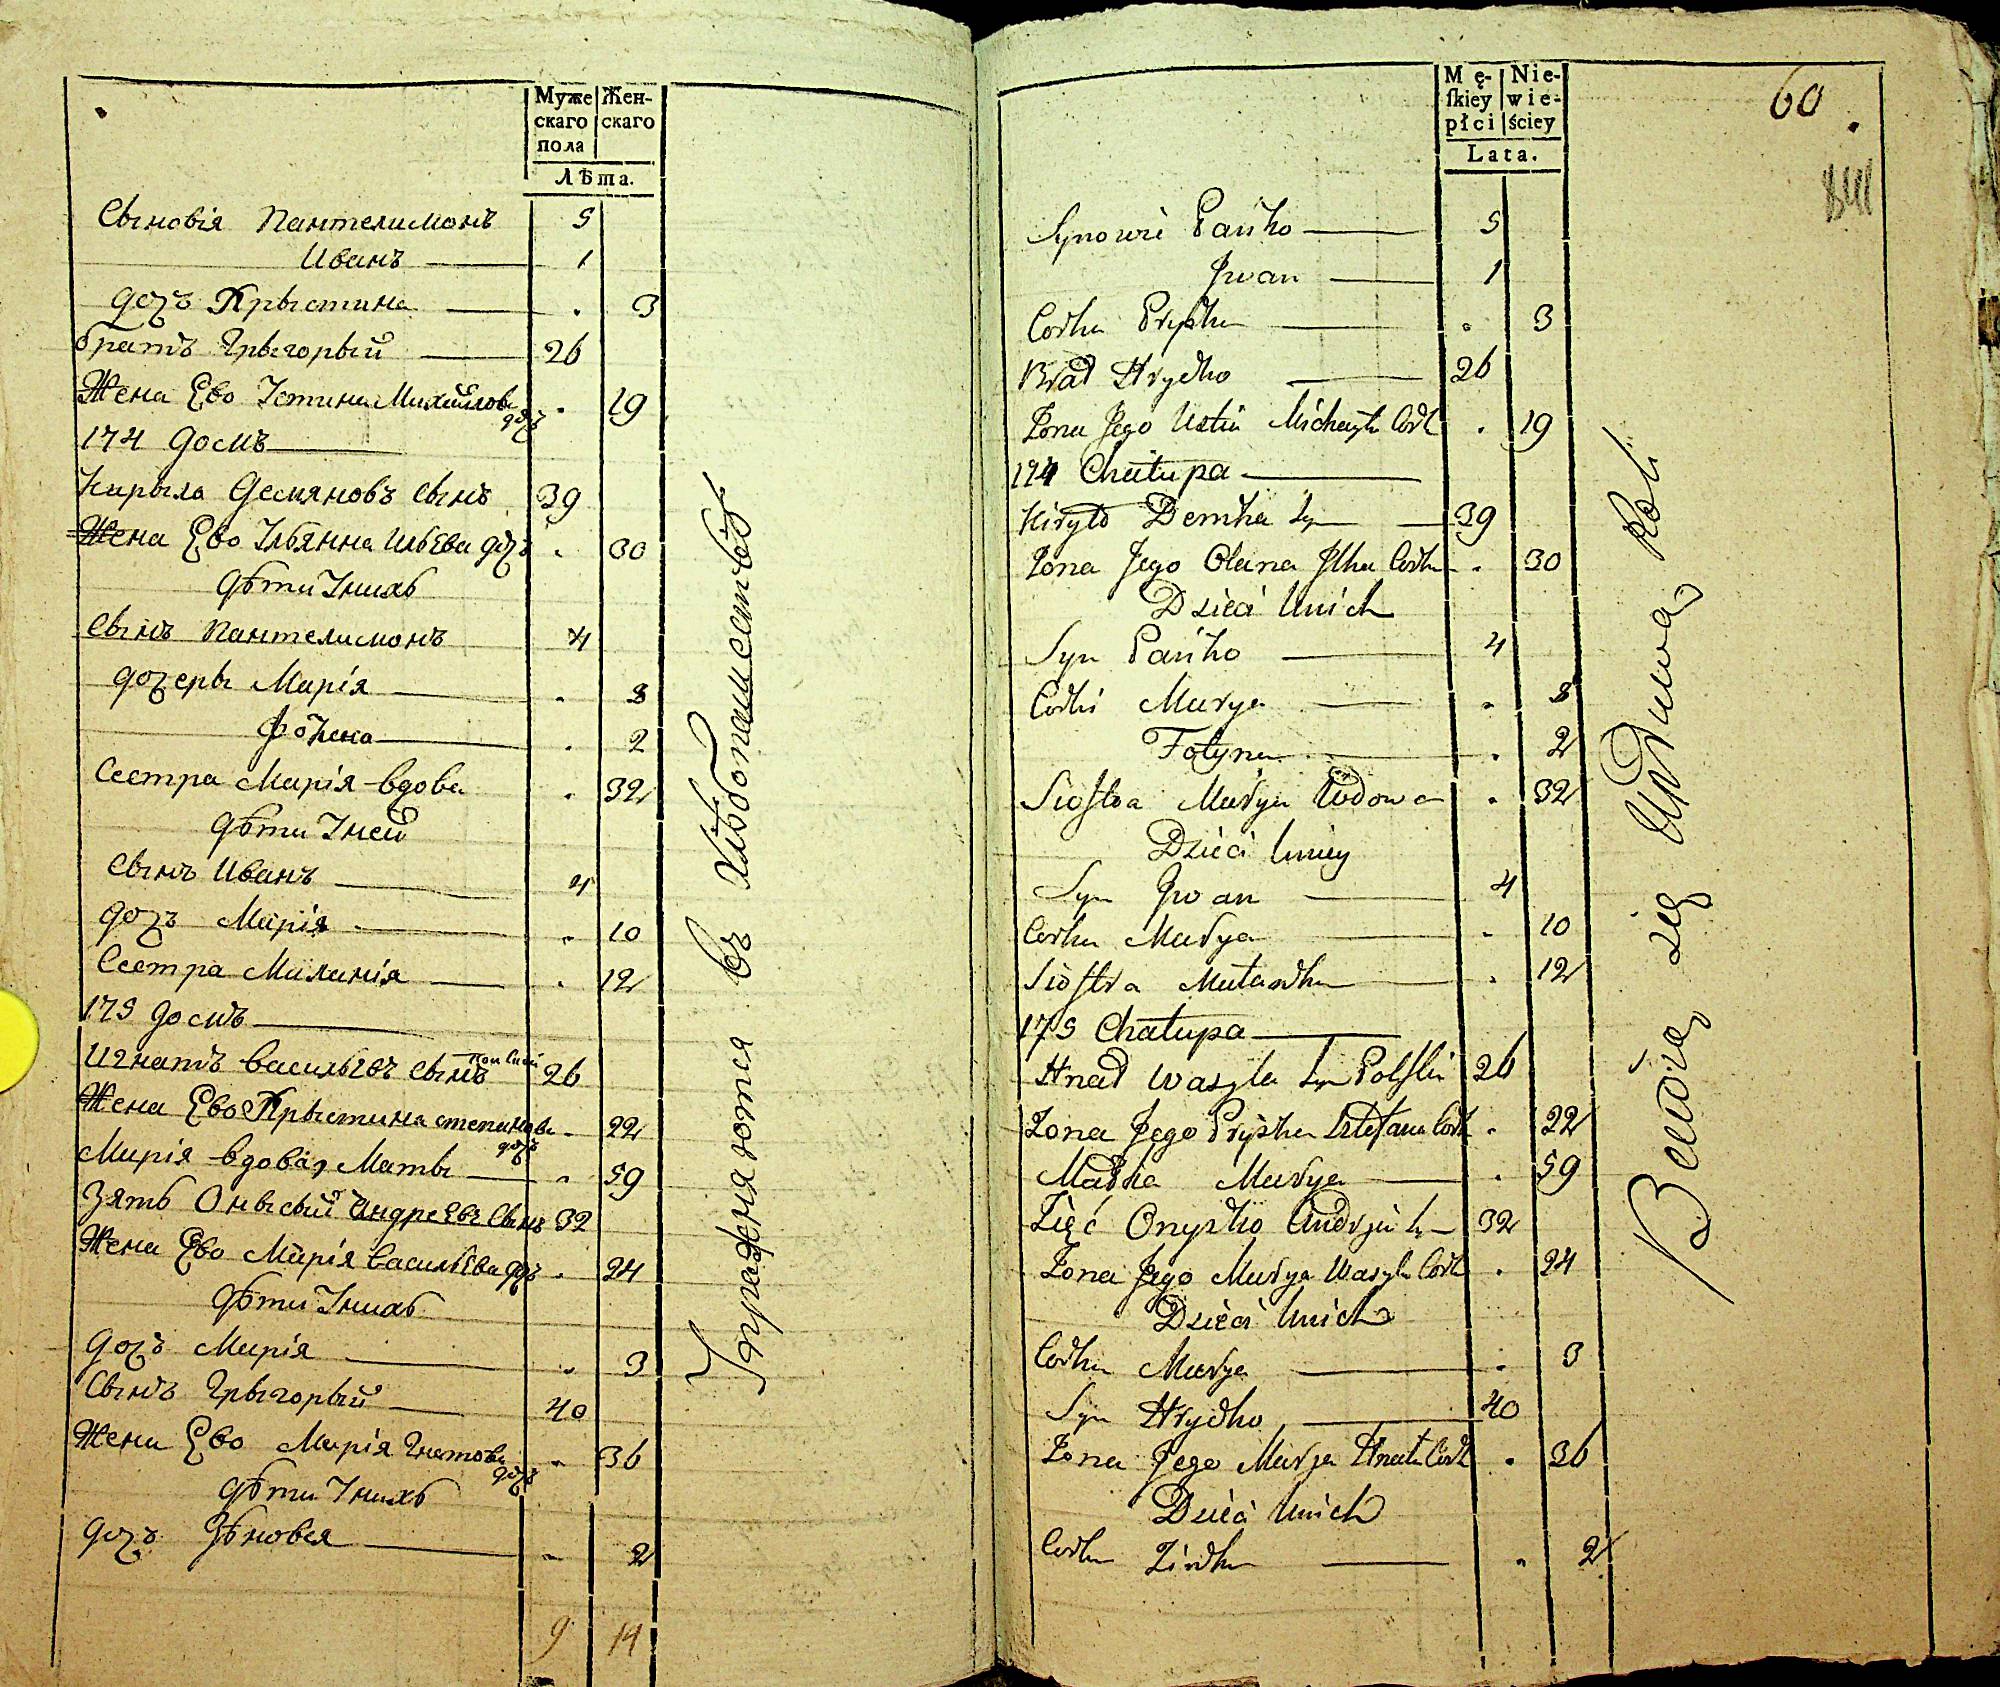 Муже Жен-
скаго скаго
пола
Лѣта.
Сынові́я Пантелимонъ 5
Иванъ 1
дочъ Крыстина . 3
братъ Грыгорый 26
Жена Ево Устина Михайлова дочъ . 19
174 домъ
Кирыла Демяновъ сынъ 39
Жена Ево Ульянна Ильева дочъ . 30
дѣти Унихъ
Сынъ Пантелимонъ 4
дочеры Марія . 8
Фотена . 2
Сестра Марія вдова . 32
дѣти Уней
Сынъ Иванъ 4
дочъ Марія . 10
Сестра Миланія . 12
175 домъ
Игнатъ Васильевъ сынъ 26
Жена Ево Крыстина степанова дочъ . 22
Марія вдова, Мать . 59
Зять Онысый Андреевъ Сынъ 32
Жена Ево Марія Васильева дочъ . 24
дѣти Унихъ
дочъ Марія . 3
Сынъ Грыгорый 40
Жена Ево Марія Гнатова дочъ . 36
дѣти Унихъ
дочъ Зѣновея . 2
9 14
Упражняются въ хлѣбопашествѣ
Mę- Nie-
skiey wie-
płci ściey
Lata.
60
Synowie Pańko 5
Jwan 1
Corka Pryska . 3
Brat Hrycko 26
Zona Jego Ustia Michayła Cor . 19
174 Chałupa
Kiryło Demka Syn 39
Zona Jego Olana Jlka Corka . 30
Dzieci Unich
Syn Pańko 4
Corki Marya . 8
Fotyna . 2
Siostra Marya Wdowa . 32
Dzieci Uniey
Syn Jwan 4
Corka Marya . 10
Siostra Małanka . 12
175 Chałupa
Hnat Wasyla Syn Polski 26
Zona Jego Pryska Stefana Cor . 22
Matka Marya . 59
Zięć Onysko Andryia Sy 32
Zona Jego Marya Wasyla Cor . 24
Dzieci Unich
Corka Marya . 3
Syn Hrycko 40
Zona Jego Marya Hnata Cor . 36
Dzieci Unich
Corka Zinka . 2
się Uprawą Roli